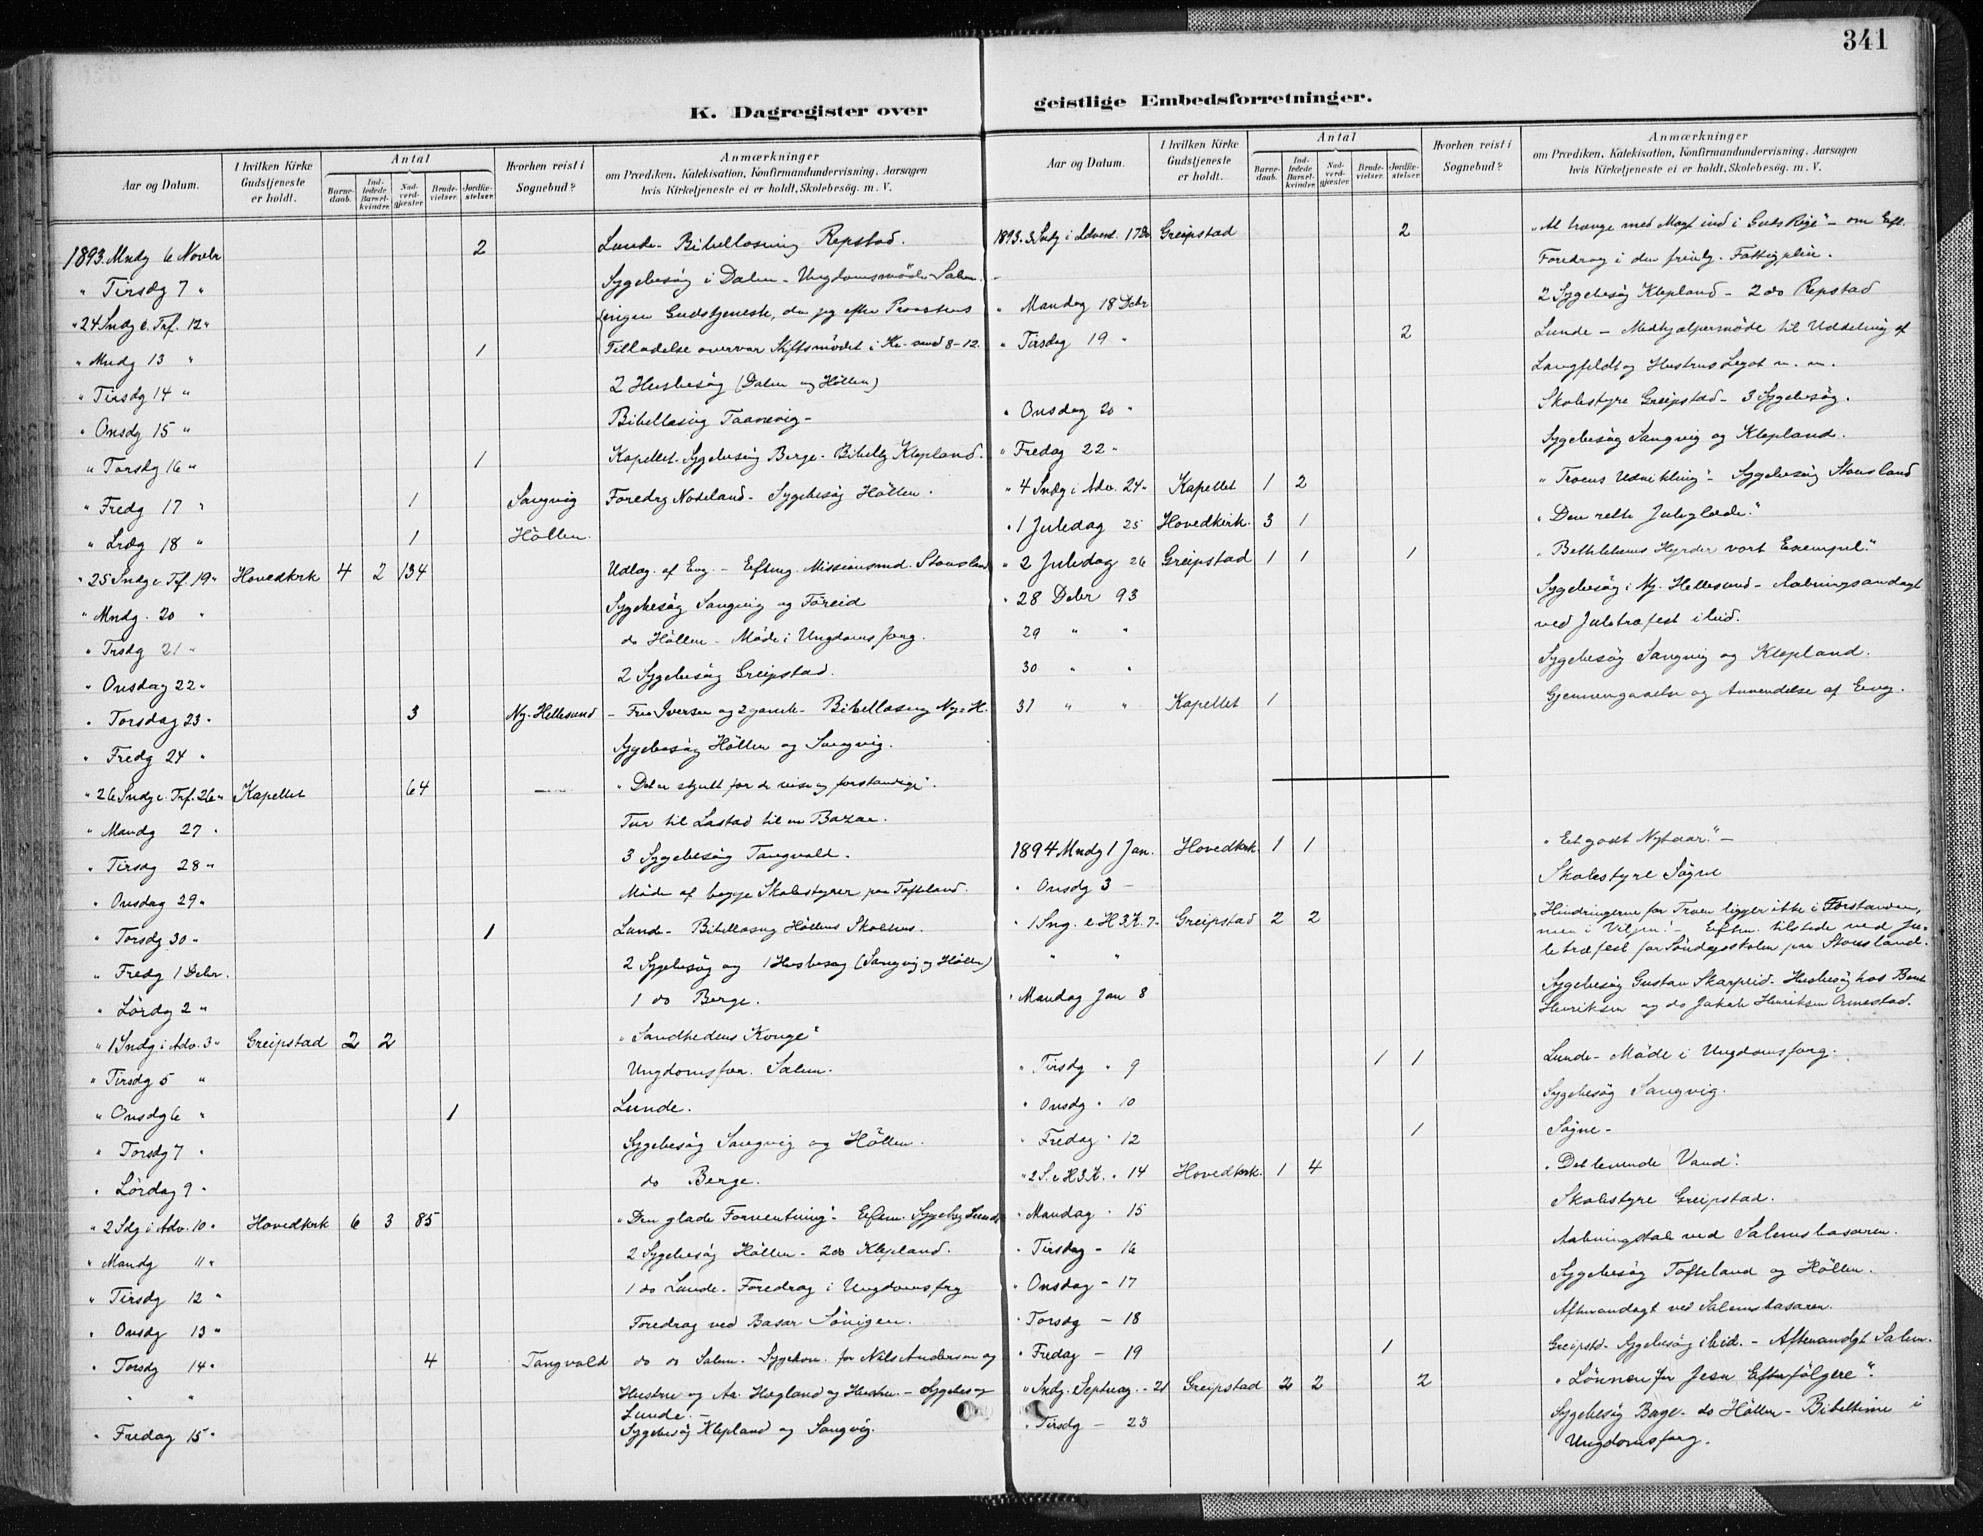 341
K. Dagregister over
geistlige Embedsforretninger.
Aar og Datum.
I hvilken Kirke Gudstjeneste er holdt.
Antal
Barnedaab.
Indledede Barselkvinder.
Nadverdgjæster
Brudevielser.
Jordfæstelser.
Hvorhen reist i Sognebud?
Anmærkninger
om Prædiken, Katekisation, Konfirmandundervisning, Aarsagen
hvis Kirketjeneste ei er holdt, Skolebesøg. m. V.
1893. Mndg 6 Novbr 2 Lunde - Bibellæsning Repstad.
" Tirsdg 7 " Sygebesøg i Dalen - Ungdomsmøde Salem.
" 24 Sndg e. Trf. 12 " ingen Gudstjeneste, da jeg efter Provstens
" Mndg 13 " 1 Tilladelse overvar Stiftsmødet i Kr.sand 8-12.
" Tirsdg 14 " 2 Husbesøg (Dalen og Höllen)
" Onsdg 15 " Bibellæsng Taanevig -
" Torsdg 16 " 1 Kapellet - Sygebesøg Berge - Bibellg Klepland.
" Fredg 17 " 1 Sangvig Foredrg Nodeland - Sygebesøg Höllen.
" Lrdg 18 " 1 Höllen.
" 25 Sndg e. Trf. 19 " Hovedkrk 4 2 134 Udlæg. af Evg. - Eftmg. Missionsmd. Stausland
" Mndg. 20 " Sygebesøg Sangvig og Föreid
" Trsdg 21 " do Höllen - Møde i Ungdomsforg.
" Onsdag 22 " 2 Sygebesøg Greipstad.
" Torsdag 23 " 3 Ny-Hellesund - Fru Iversen og 2 gamle - Bibellæsng Ny-H.
" Fredg 24 " Sygebesøg Höllen og Sangvig.
" 26 Sndg e. Trf. 26 " Kapellet 64 "Det er skjult for de vise og forstandige".
" Mandg 27 " Tur til Lastad til en Bazar.
" Tirsdg 28 " 3 Sygebesøg Tangvald.
" Onsdag 29 " Møde af begge Skolestyrer paa Tofteland.
" Torsdg 30 " 1 Lunde - Bibellæsng Höllens Skolehus.
" Fredg 1 Debr. 2 Sygebesøg og 1 Husbesøg (Sangvig og Höllen)
" Lördg 2 " 1 do Berge.
" 1 Sndg i Adv. 3 " Greipstad 2 2 "Sandhedens Konge"
" Tirsdg 5 " Ungdomsfor. Salem.
" Onsdg 6 " 1 Lunde.
" Torsdg 7 " Sygebesøg Sangvig og Höllen.
" Lördag 9 " do Berge.
" 2 Sdg i Adv. 10 " Hovedkrk 6 3 85 "Den glade Forventning". Eftm. Sygebsg Lunde
" Mandg 11 " 2 Sygebesøg Höllen - 2 do Klepland.
" Tirsdg 12 " 1 do Lunde - Foredrag i Ungdomsfrg
" Onsdg 13 " Foredrag ved Basar Lönigen.
" Torsdg 14 " 4 Tangvald do do Salem - Sygekom. for Nils Andersen og
" " Hustru og Aa. Hægland og Hustru. - Sygebesøg
Lunde. -
" Fredag 15 " Sygebesøg Klepland og Sangvig.
Aar og Datum.
I hvilken Kirke Gudstjeneste er holdt.
Antal
Barnedaab.
Indledede Barselkvinder.
Nadverdgjæster.
Brudevielser.
Jordfæstelser.
Hvorhen reist i Sognebud?
Anmærkninger
om Prædiken, Katekisation, Konfirmandundervisning, Aarsagen
hvis Kirketjeneste ei er holdt, Skolebesøg. m. V.
1893. 3 Sndg i Advent. 17 Do Greipstad 2 "At trænge med Magt ind i Guds Rige" - om Eft.
Foredrag i den frivlg. Fattigpleie.
" Mandag 18 Debr 2 Sygebesøg Klepland - 2 do Repstad
" Tirsdag 19 " 2 Lunde - Medhjælpermøde til Uddeling af
Langfeldt og Hustrus Legat m. m.
" Onsdag 20 " Skolestyre Greipstad - 3 Sygebesøg.
" Fredag 22 " Sygebesøg Sangvig og Klepland.
" 4 Sndg i Adv. 24 " Kapellet 1 2 "Troens Udvikling" - Sygebesøg Stausland
" 1 Juledag 25 Hovedkirk. 3 1 "Den rette Juleglæde."
" 2 Juledag 26 Greipstad 1 1 1 "Bethlehems Hyrder vort Exempel."
" 28 Debr 93 Sygebesøg i Ny-Hellesund - Aabningsandagt
29 " " ved Juletræfest i
30 " " Sygebesøg Sangvig og Klepland.
31 " " Kapellet 1 Gjennemgaaelse og Anvendelse af Evg.
1894 Mndg 1 Jan. Hovedkrk 1 1 "Et godt Nytaar." -
" Onsdg 3 - Skolestyre Sögne
" 1 Sng. e. H.3.K. 7 - Greipstad 2 2 "Hindringerne for Troen ligger ikke i Forstanden,
men i Viljen". - Eftm. tilstede ved Ju-
" " letræfest for Søndagsskolen paa Stausland.
" Mandag Jan 8 Sygebesøg Gustav Skarpeid - Husbesøg hos Bent
Henriksen og do Jakob Henriksen Ormestad.
" Tirsdg " 9 1 1 Lunde - Møde i Ungdomsforg.
" Onsdg " 10 Sygebesøg Sangvig.
" Fredag " 12 1 Sögne -
" 2 S. e. H.3.K. " 14 Hovedkrk. 1 4 "Det levende Vand".
" Mandag " 15 Skolestyre Greipstad.
" Tirsdag - 16 Aabningstale ved Salemsbasaren.
" Onsdag - 17 Sygebesøg Tofteland og Höllen.
" Torsdg - 18 Aftenandagt ved Salemsbasaren.
" Fredag - 19 1 Greipstd - Sygebesøg - Aftenandgt Salem.
" Sndg. Septuag. - 21 Greipstad 2 2 2 "Lønnen for Jesu Efterfølgere".
" Tirsdg - 23 Sygebesøg Berge - do Höllen - Bibeltime i
Ungdomsforg.